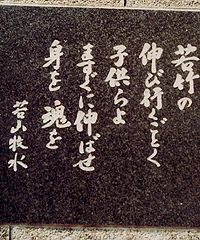 若竹の
伸び行くごとく
子供らよ
ますぐに伸ばせ
身を 魂を
若山牧水